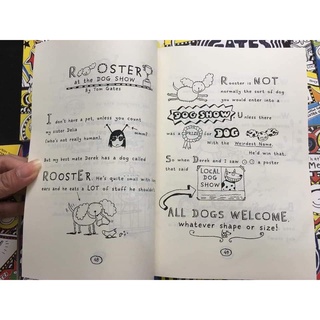 ROOSTER
at the DOG SHOW
By Tom Gates
I don't have a pet, unless you count
my sister Delia
(she's not really human).
But my best mate Derek has a dog called
ROOSTER. He's quite small with
ears and he eats a LOT of stuff he shouldn't
48
Rooster is NOT
normally the sort of dog
you would enter into a
DOG SHOW. Unless there
was a PRIZE for DOG
with the Weirdest Name.
He'd win that.
So when Derek and I saw a poster
that said
LOCAL
DOG
SHOW
ALL DOGS WELCOME,
whatever shape or size!
49